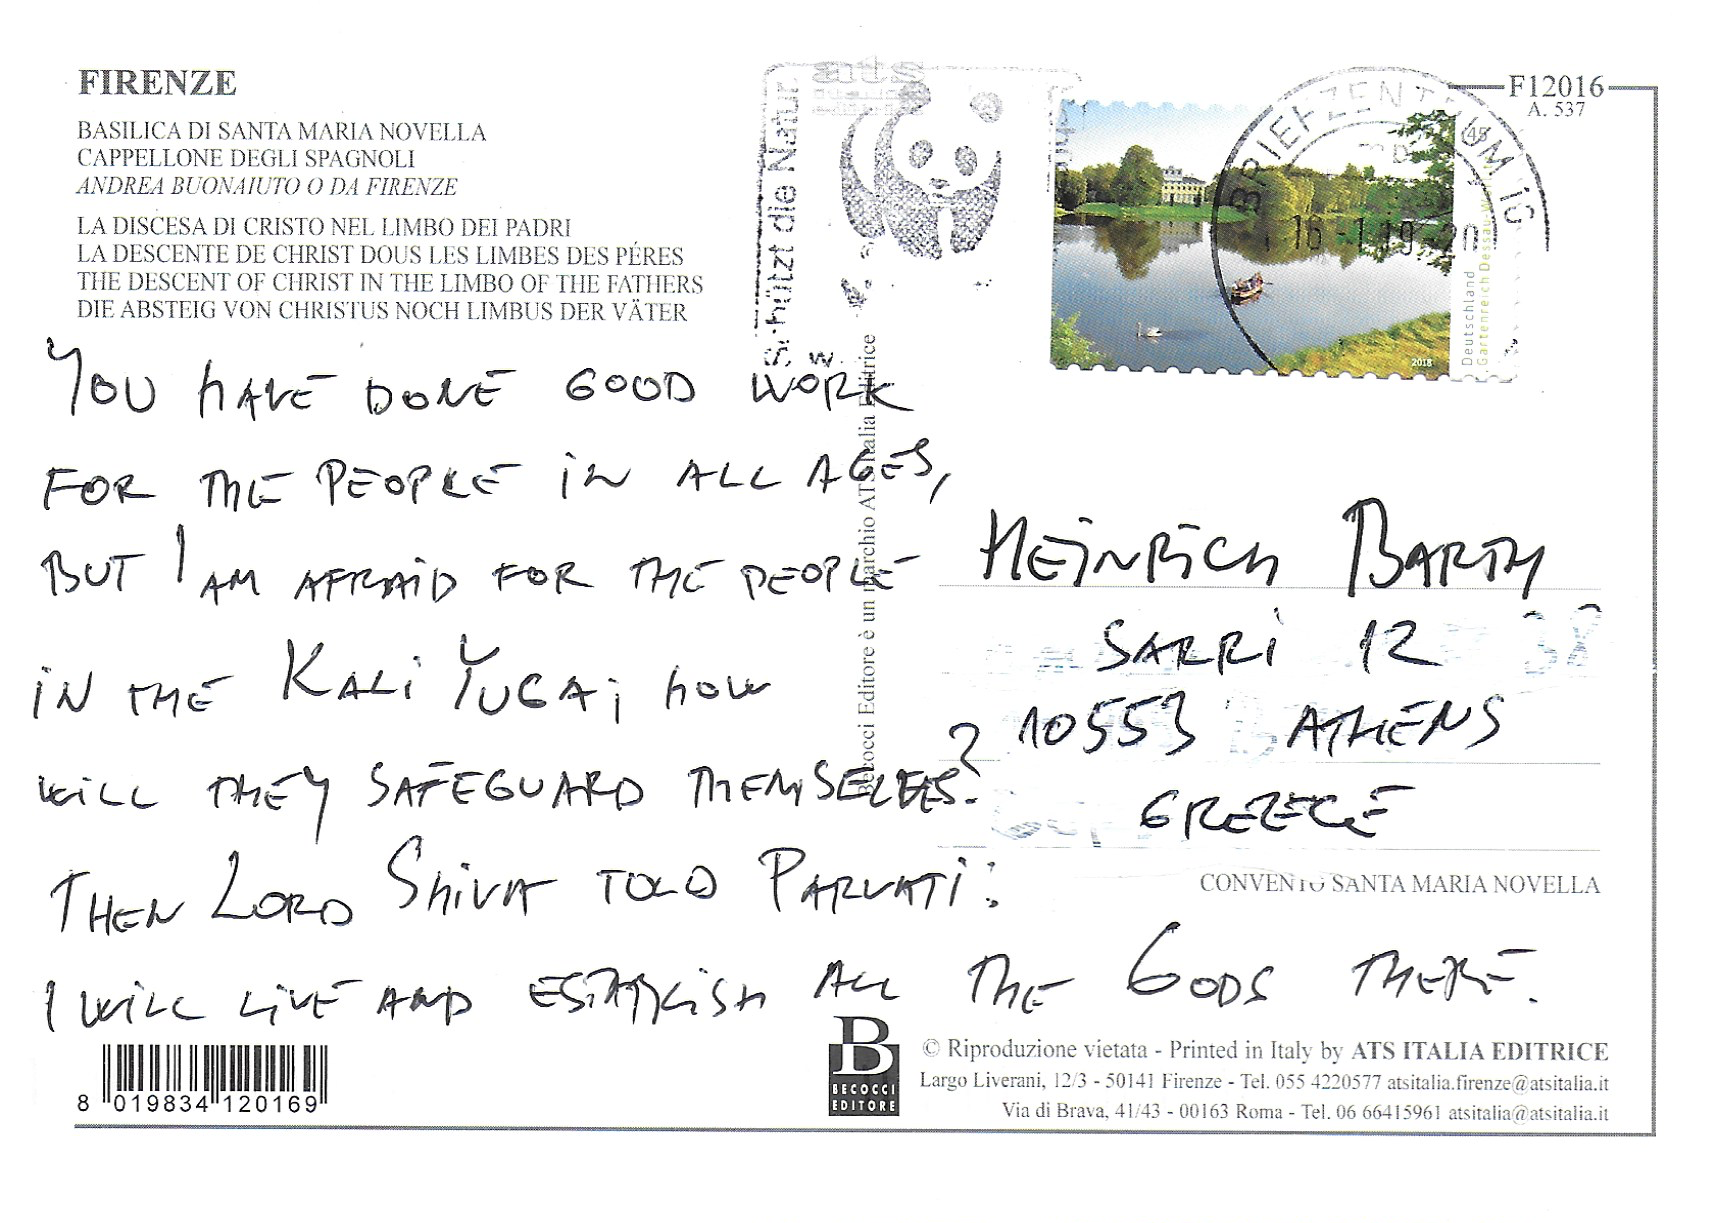 FIRENZE
BASILICA DI SANTA MARIA NOVELLA
CAPPELLONE DEGLI SPAGNOLI
ANDREA BUONAIUTO O DA FIRENZE
LA DISCESA DI CRISTO NEL LIMBO DEI PADRI
LA DESCENTE DE CHRIST DOUS LES LIMBES DES PÉRES
THE DESCENT OF CHRIST IN THE LIMBO OF THE FATHERS
DIE ABSTEIG VON CHRISTUS NOCH LIMBUS DER VÄTER
ats
Schützt die Natur
BRIEFZENTRUM
16-1.19-20
45
Deutschland
Gartenreich
2018
F12016
A. 537
YOU HAVE DONE GOOD WORK
FOR THE PEOPLE IN ALL AGES,
BUT I AM AFRAID FOR THE PEOPLE
IN THE KALI YUGA; HOW
WILL THEY SAFEGUARD THEMSELVES?
THEN LORD SHIVA TOLD PARVATI:
I WILL LIVE AND ESTABLISH ALL THE GODS THERE.
Becocci Editore è un marchio ATS Italia Editrice
HEINRICH BARTH
SARRI 12
10553 ATHENS
GREECE
CONVENTO SANTA MARIA NOVELLA
8 019834 120169
B
BECOCCI
EDITORE
© Riproduzione vietata - Printed in Italy by ATS ITALIA EDITRICE
Largo Liverani, 12/3 - 50141 Firenze - Tel. 055 4220577 atsitalia.firenze@atsitalia.it
Via di Brava, 41/43 - 00163 Roma - Tel. 06 66415961 atsitalia@atsitalia.it